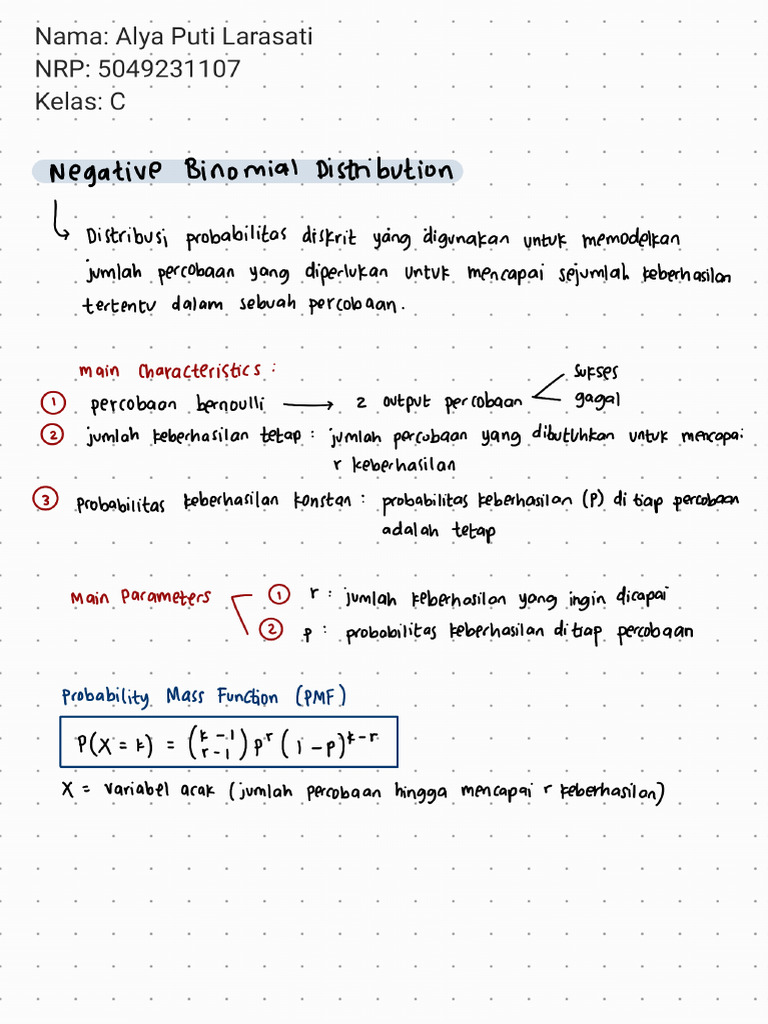 Nama: Alya Puti Larasati
NRP: 5049231107
Kelas: C
Negative Binomial Distribution
Distribusi probabilitas diskrit yang digunakan untuk memodelkan
jumlah percobaan yang diperlukan untuk mencapai sejumlah keberhasilan
tertentu dalam sebuah percobaan.
Main Characteristics :
sukses
① percobaan bernoulli → 2 output percobaan
gagal
② jumlah keberhasilan tetap : jumlah percobaan yang dibutuhkan untuk mencapai
r keberhasilan
③ probabilitas keberhasilan konstan : probabilitas keberhasilan (P) di tiap percobaan
adalah tetap
Main Parameters ① r : jumlah keberhasilan yang ingin dicapai
② p : probabilitas keberhasilan di tiap percobaan
Probability Mass Function (PMF)
P(X = k) = (k-1 r-1) p^r (1-p)^k-r
X = variabel acak (jumlah percobaan hingga mencapai r keberhasilan)